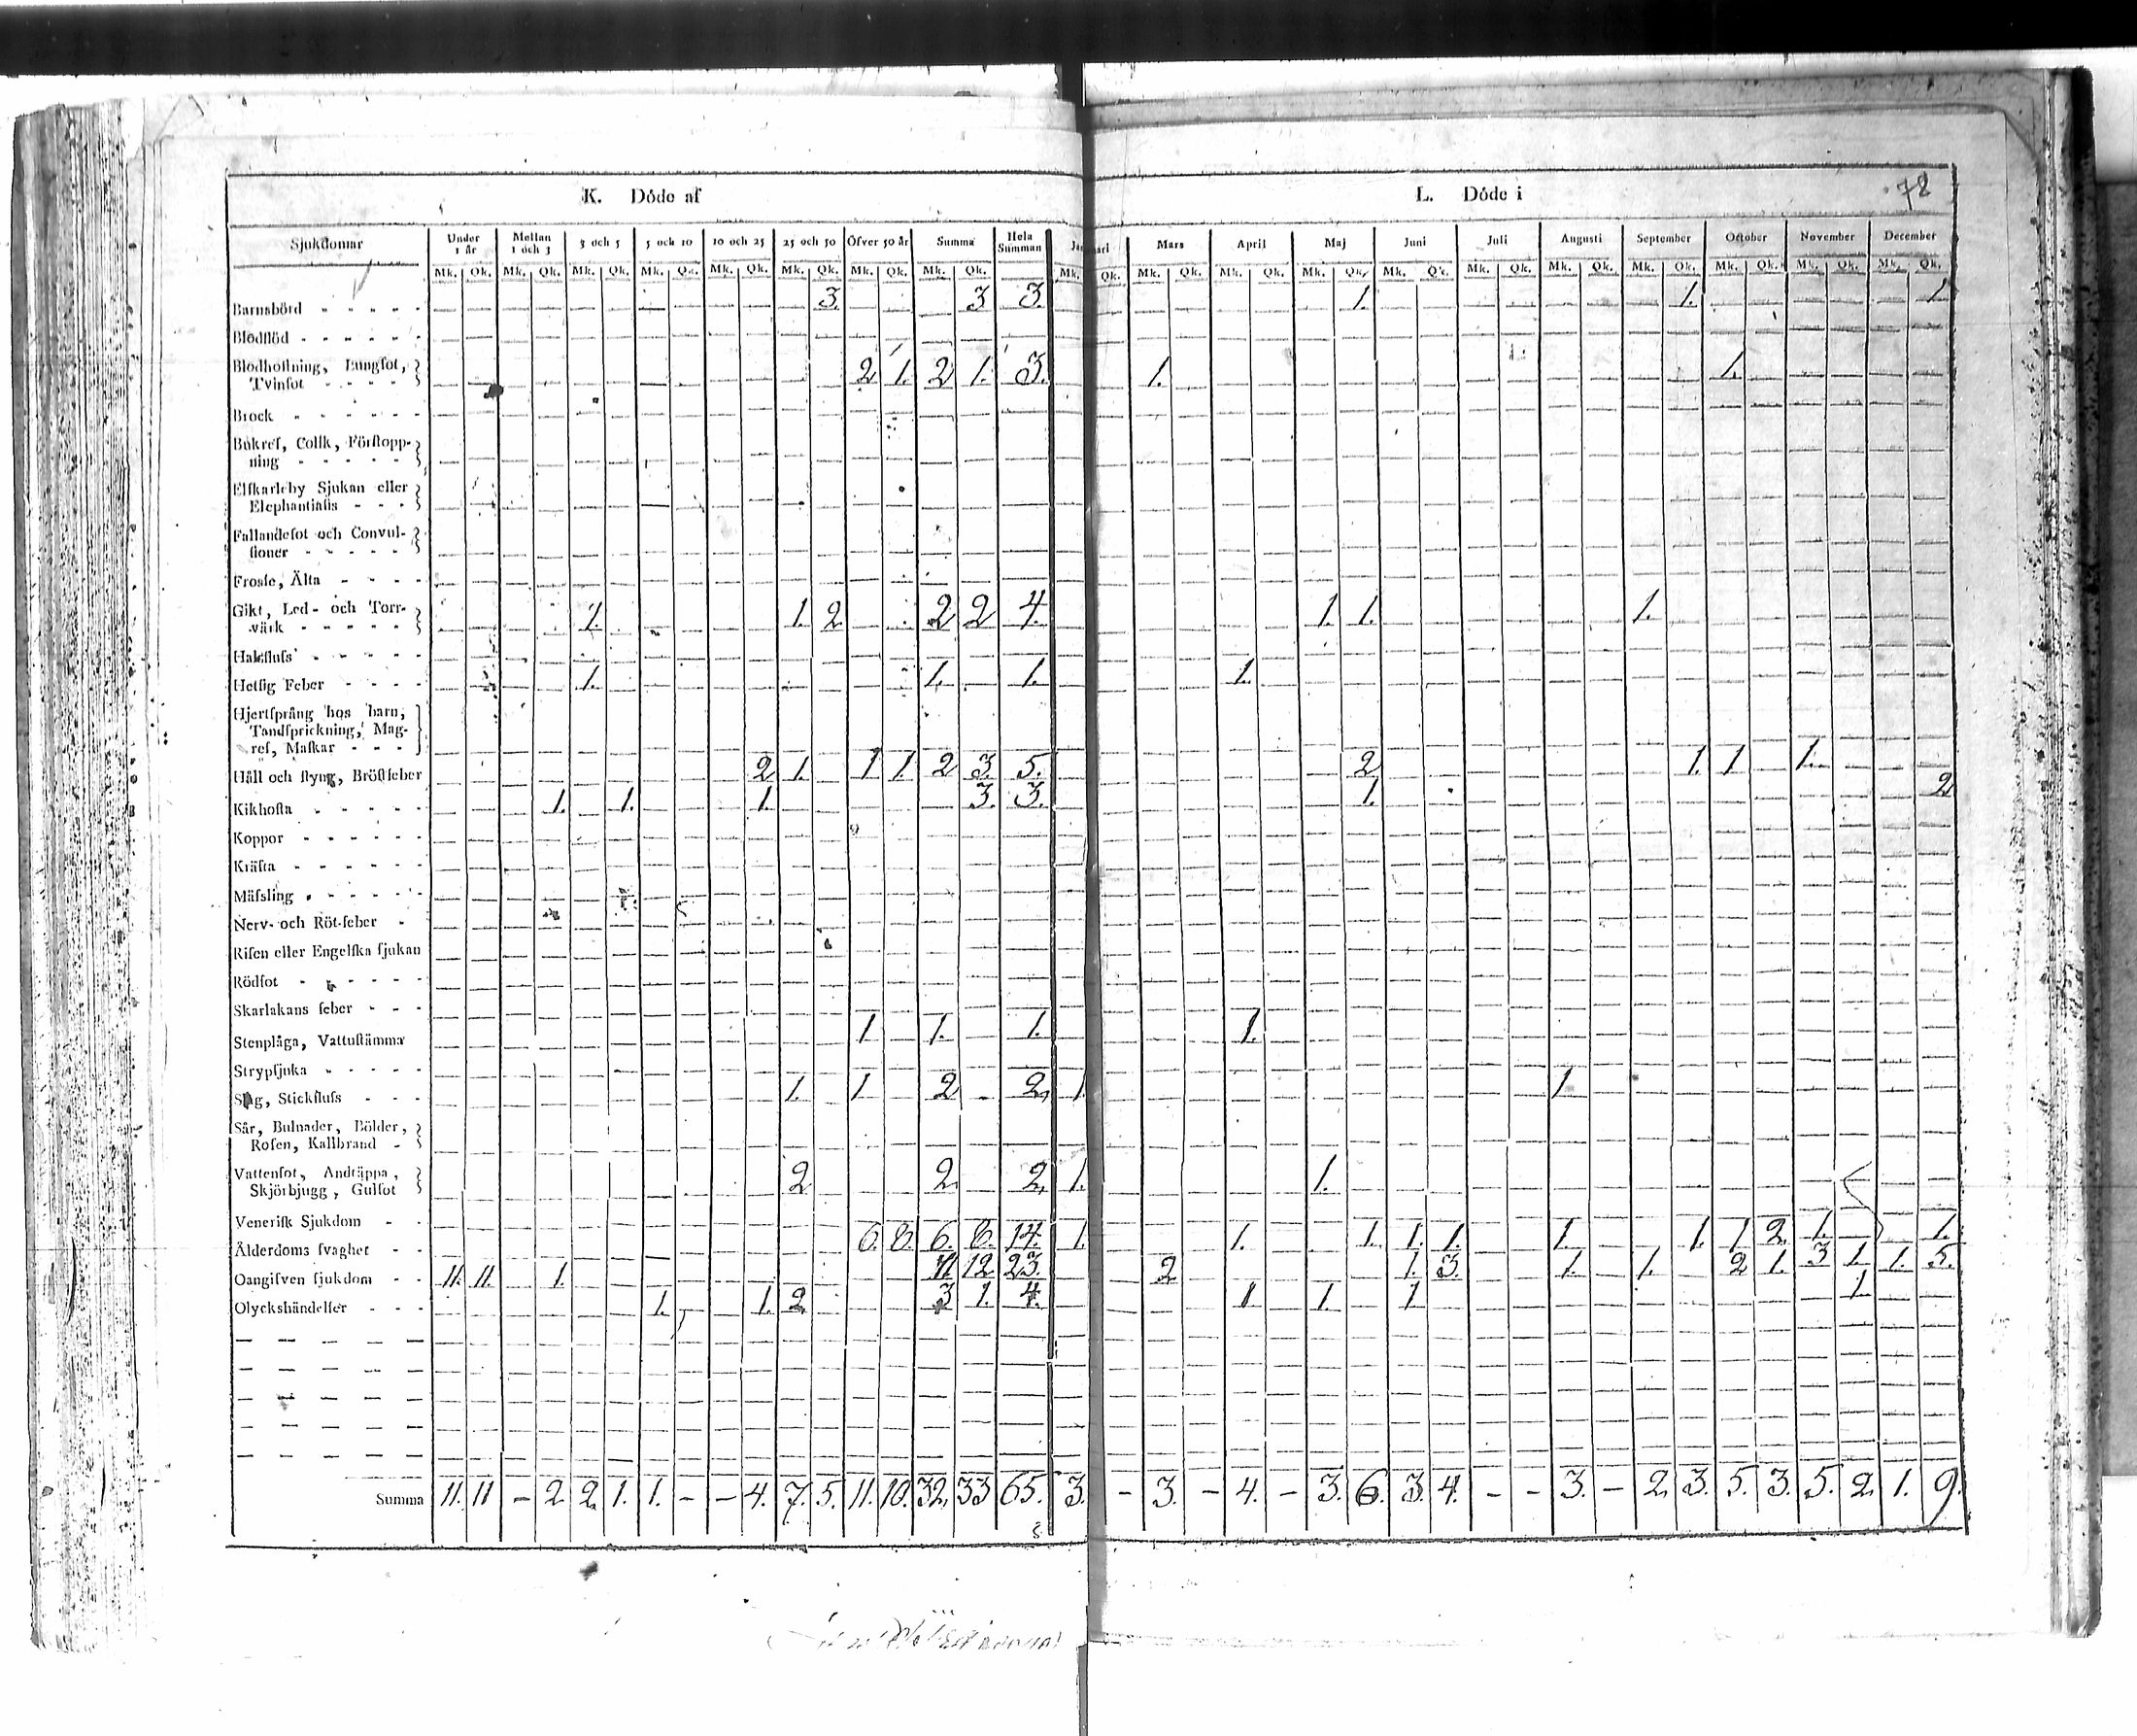 K. Döde af
L. Döde i
72
Sjukdomar Under 1 år Mellan 1 och 3 3 och 5 5 och 10 10 och 25 25 och 50 Öfver 50 år Summa Hela Summan
Mars April Maj Juni Juli Augusti September October November December
Mk. Qk. Mk. Qk. Mk. Qk. Mk. Qk. Mk. Qk. Mk. Qk. Mk. Qk. Mk. Qk. Mk. Qk. Mk. Qk. Mk. Qk. Mk. Qk. Mk. Qk. Mk. Qk. Mk. Qk. Mk. Qk. Mk. Qk. Mk. Qk. Mk. Qk.
Barnsbörd 3. 3 3. 1. 1. 1
Blodflöd
Blodhoſtning, Lungſot,
Tvinſot 2 1. 2 1. 3. 1. 1.
Brock
Bukreſ, Colik, Förſtopp-
ning
Elſkarleby Sjukan eller
Elephantiaſis
Fallandeſot och Convul-
ſioner
Froſſe, Älta
Gikt, Led- och Torr-
värk 1. 1. 2 2 2 4. 1. 1. 1.
Halsfluſs
Hetſig Feber 1. 1. 1. 1.
Hjertſprång hos barn,
Tandſprickning, Mag-
reſ, Maſkar
Håll och ſtyng, Bröſtfeber 2 1. 1 1. 2 3. 5. 2 1. 1 1.
Kikhoſta 1. 1. 1. 3. 3. 1. 2
Koppor
Kräfta
Mäſsling
Nerv- och Röt-feber
Riſen eller Engelſka ſjukan
Rödſot
Skarlakans feber
Stenplåga, Vattuſtämma 1 1. 1. 1.
Strypſjuka
Slag, Stickfluſs 1. 1 2 2. 1. 1
Sår, Bulnader, Bölder,
Roſen, Kallbrand
Vattenſot, Andtäppa,
Skjörbjugg, Gulſot 2 2. 2. 1. 1.
Veneriſk Sjukdom
Ålderdoms ſvaghet 6. 8. 6. 8. 14. 1. 1. 1. 1. 1. 1. 1. 1 2. 1. 1.
Oangifven ſjukdom 11. 11. 1. 11 12 23. 2 1. 3. 1. 1. 2 1. 3 1. 1. 5.
Olyckshändelſer 1. 1. 2. 3 1. 4. 1 1 1 1
Summa 11. 11 - 2 2. 1. 1. - - 4. 7. 5. 11. 10. 32. 33 65. 3. - 3. - 4. - 3. 6. 3. 4. - - 3. - 2. 3. 5. 3. 5. 2. 1. 9.